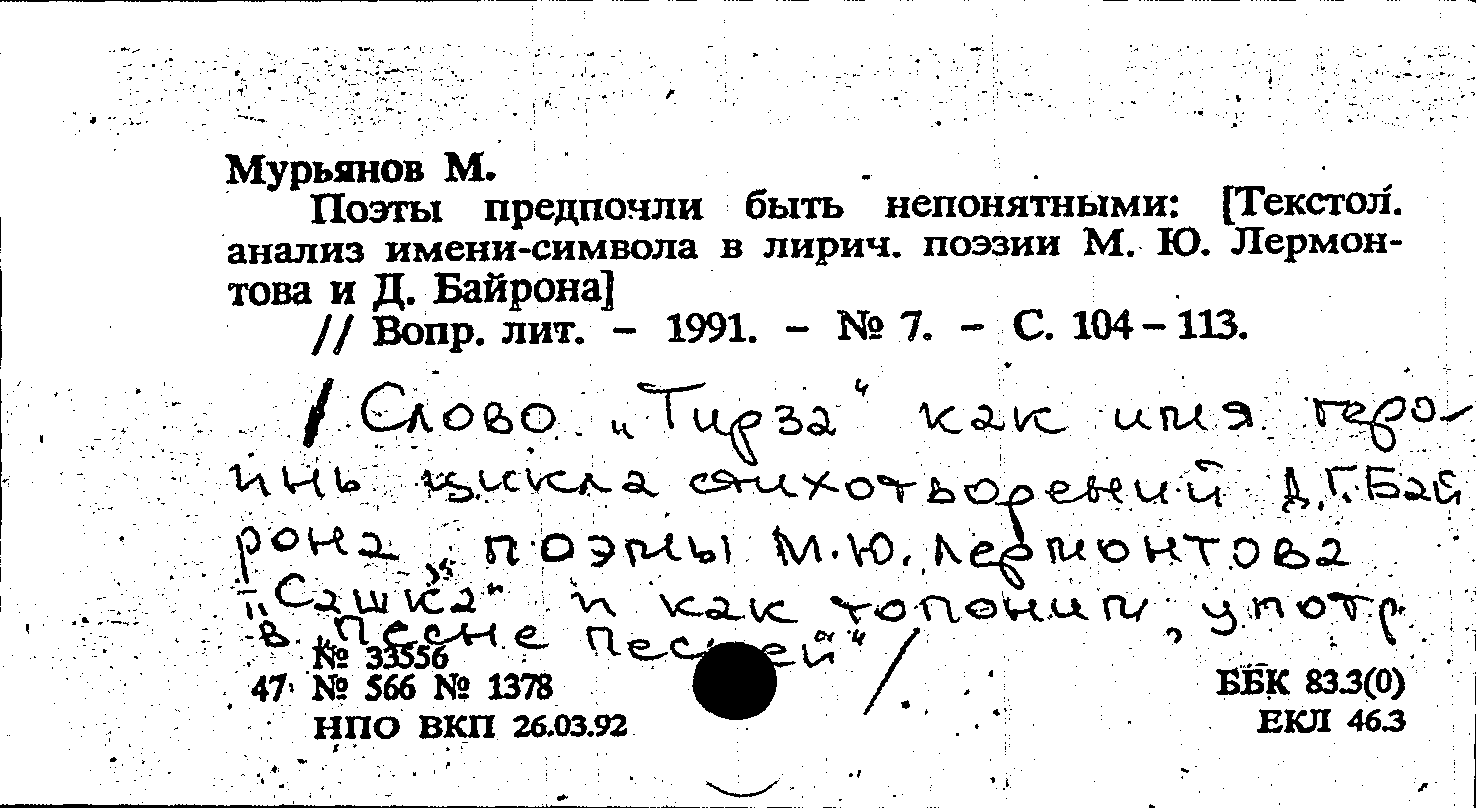 Мурьянов М.
Поэты предпочли быть непонятными: [Текстол.
анализ имени-символа в лирич. поэзии М. Ю. Лермон-
това и Д. Байрона]
// Вопр. лит. – 1991. – № 7. – С. 104–113.
/ Слово „Тирза“ как имя геро-
инь цикла стихотворений Д.Г. Бай
рона, поэмы М.Ю. Лермонтова
„Сашка“ и как топоним, употр.
в „Песне Песней“ /
№ 33556
47 № 566 № 1378
НПО ВКП 26.03.92
ББК 83.3(0)
ЕКЛ 46.3